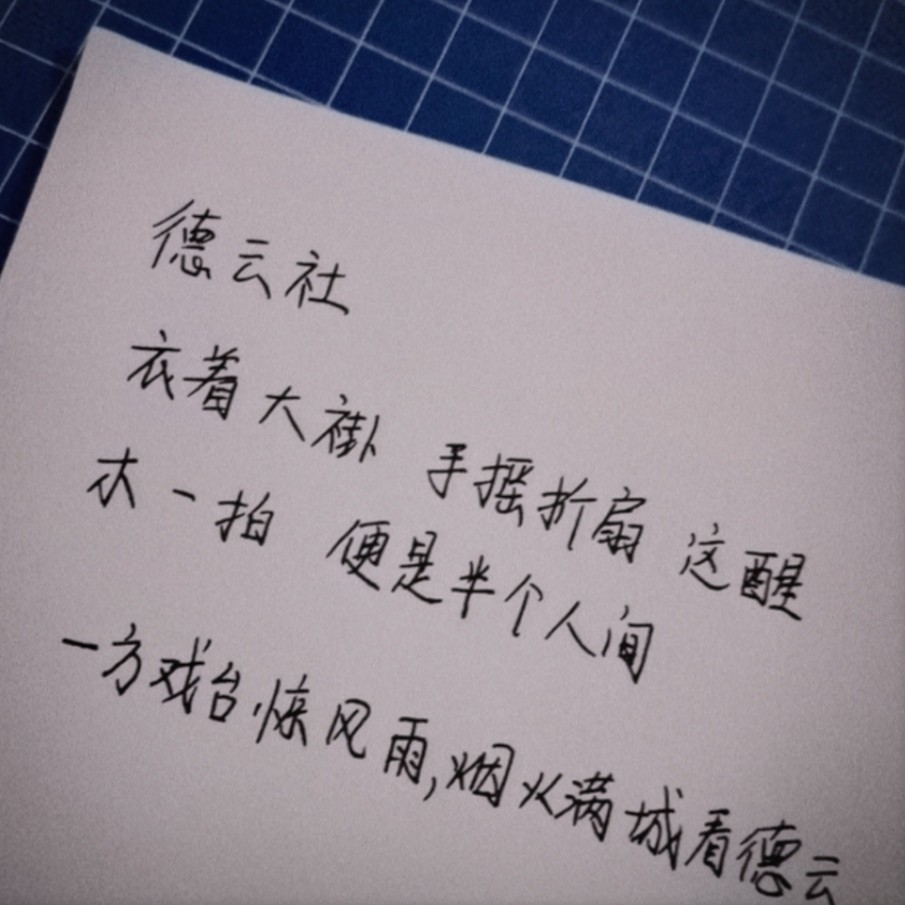 德云社
衣着大褂 手摇折扇 这醒
木一拍 便是半个人间
一方戏台惊风雨,烟火满城看德云